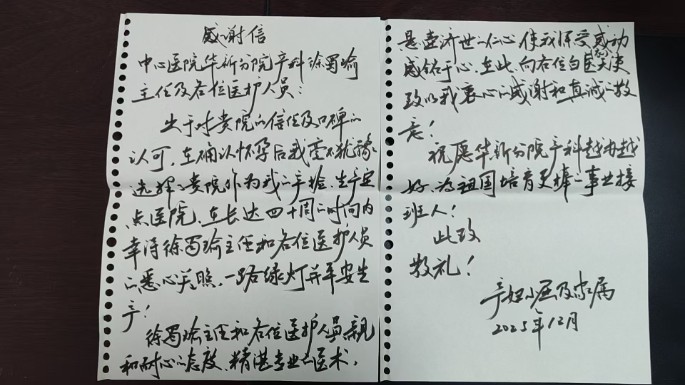 感谢信
中心医院华新分院产科徐蜀瑜
主任及各位医护人员：
出于对贵院的信任及口碑的
认可，在确认怀孕后我毫不犹豫
选择了贵院作为我的产检、生产定
点医院，在长达四十周的时间内
幸得徐蜀瑜主任和各位医护人员
的悉心关照，一路绿灯并平安生
产！
徐蜀瑜主任和各位医护人员亲
和耐心的态度、精湛专业的医术，
悬壶济世的仁心使我深受感动
感铭于心，在此，向各位白衣天使
致以我衷心的感谢和真诚的敬
意！
祝愿华新分院产科越办越
好，为祖国培育更棒的事业接
班人！
此致
敬礼！
产妇小屈及家属
2025年12月